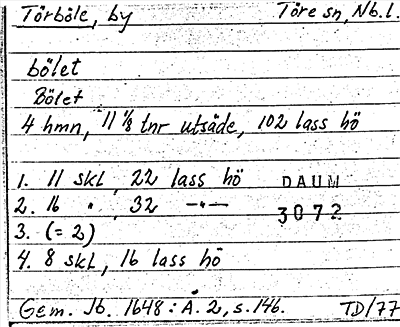 Törböle, by Töre sn, Nb.l.
bölet
Bölet
4 hmn, 11 1/8 tnr utsäde, 102 lass hö
1. 11 skl, 22 lass hö DAUM
2. 16 " , 32 —"— 3072
3. (= 2)
4. 8 skl, 16 lass hö
Gem. Jb. 1648: A. 2, s. 146. TD/77